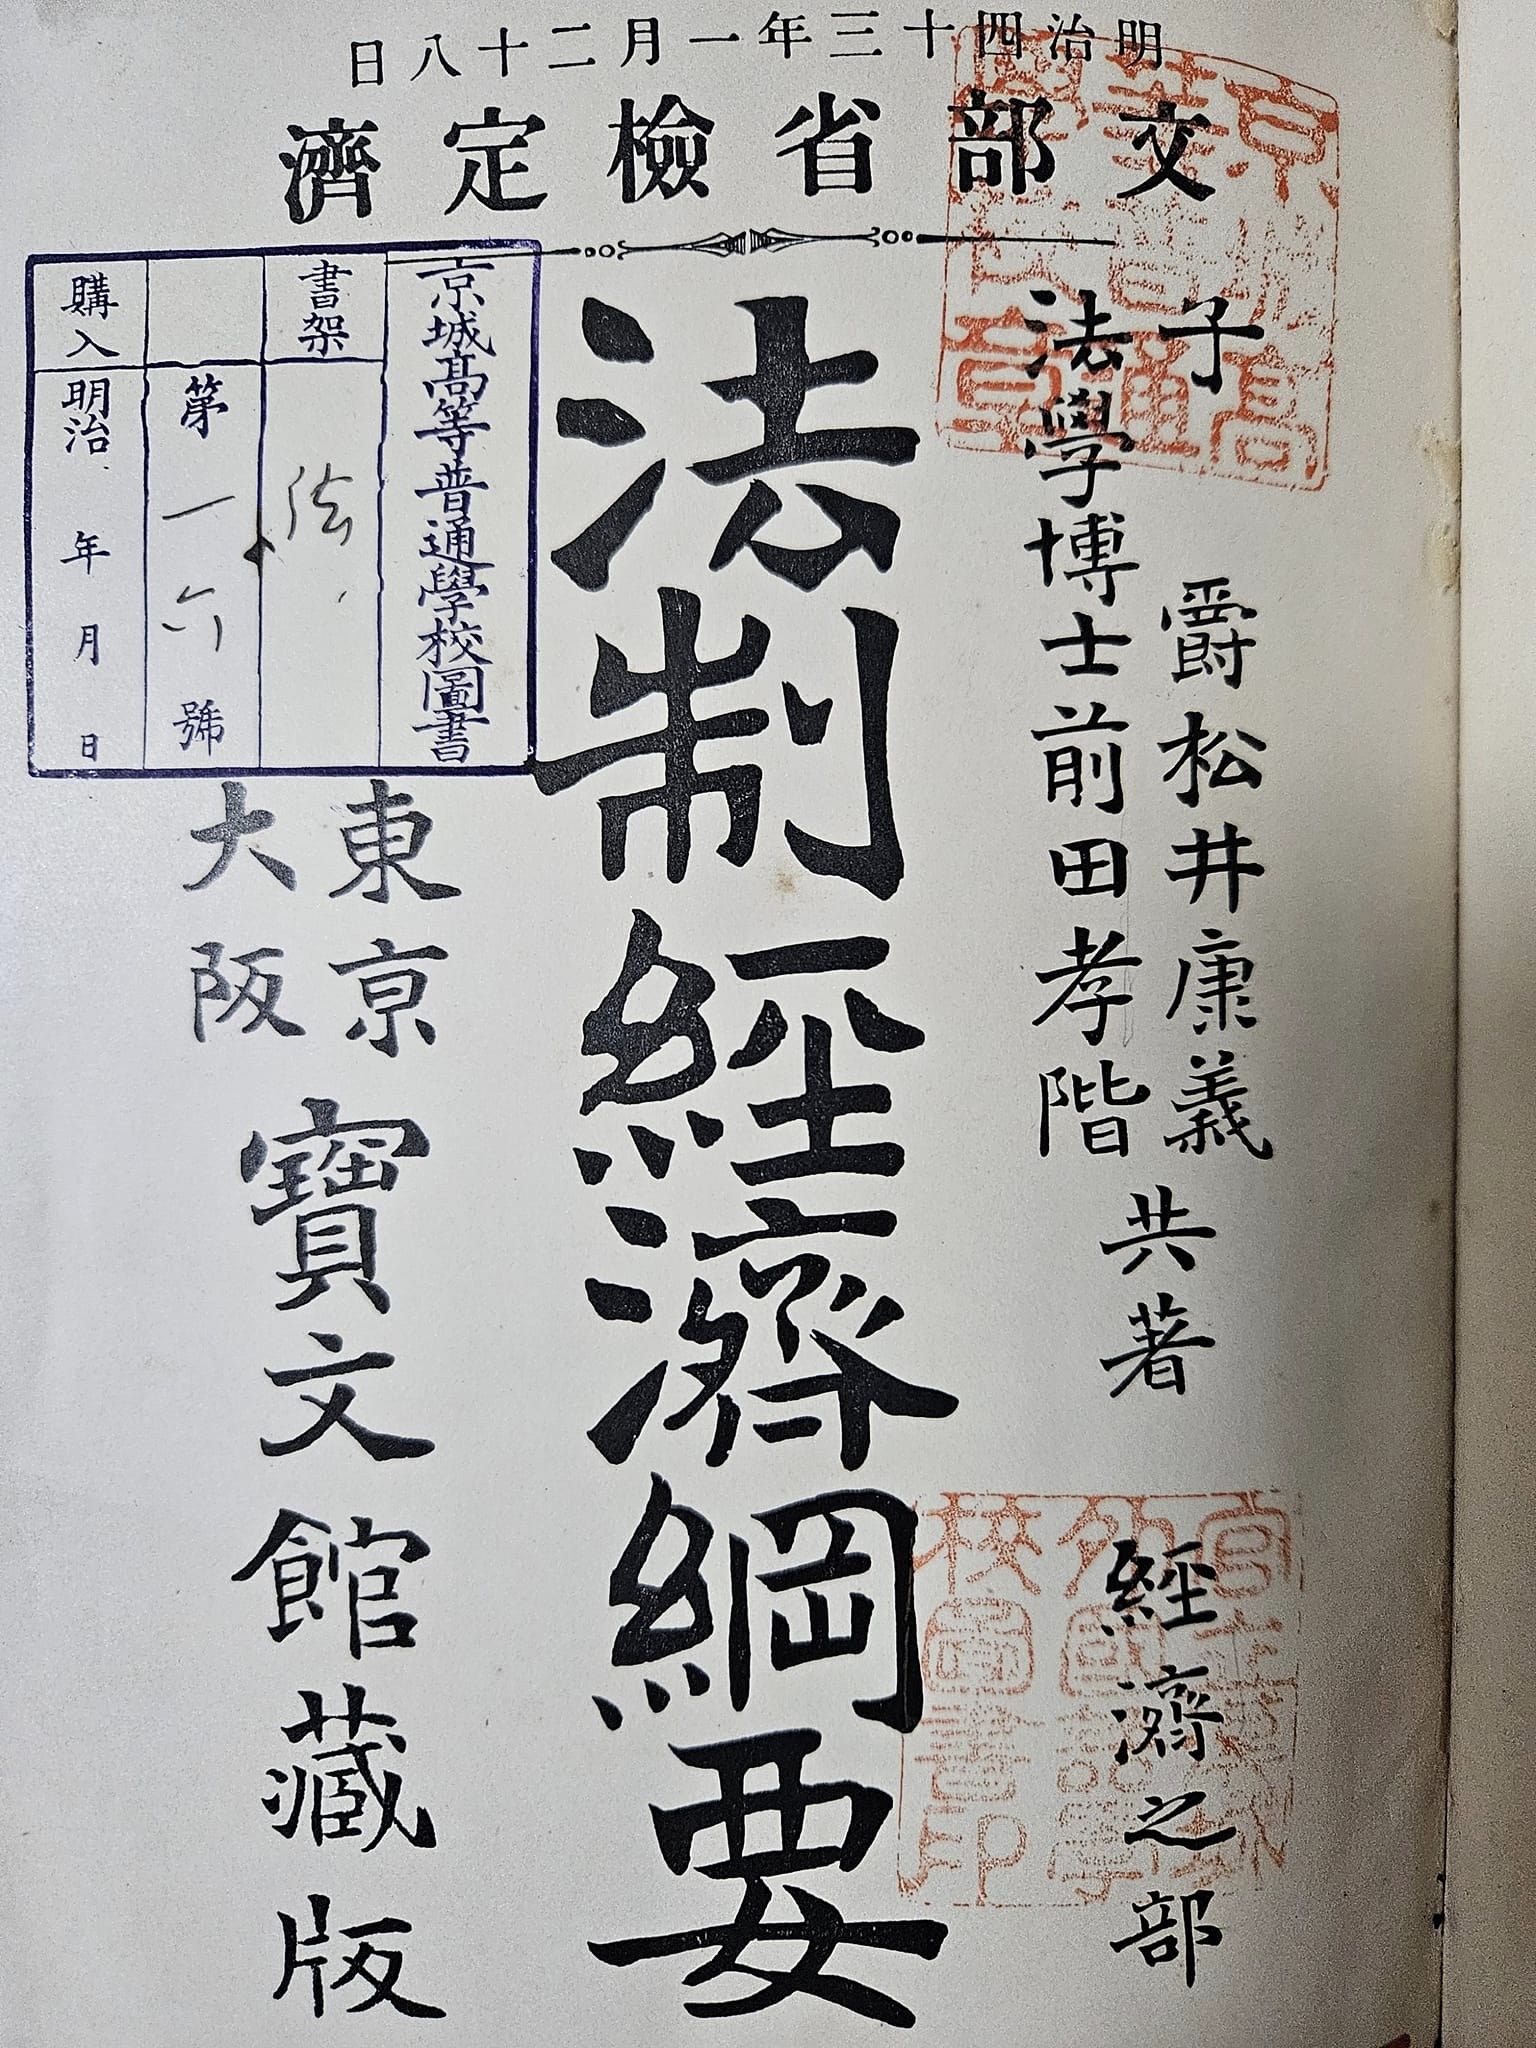 明治四十三年一月二十八日
文部省檢定濟
子爵松井康義
法學博士前田孝階
共著
經濟之部
法制經濟綱要
東京
大阪
寶文館藏版
京城高等普通學校圖書
書架
法
第一六號
購入
明治 年 月 日
官立漢城外國語學校圖書印